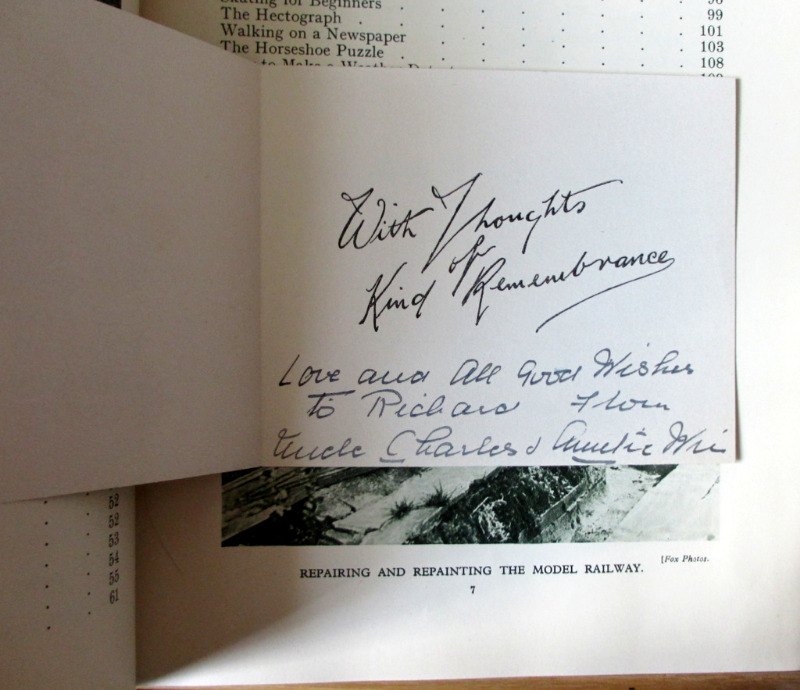 Skating for Beginners . . . 96
The Hectograph . . . 99
Walking on a Newspaper . . . 101
The Horseshoe Puzzle . . . 103
to Make a Weather . . . 108
With Thoughts
of
Kind Remembrance
Love and All Good Wishes
To Richard From
Uncle Charles & Auntie Win
52
52
53
54
55
61
[Fox Photos.
REPAIRING AND REPAINTING THE MODEL RAILWAY.
7